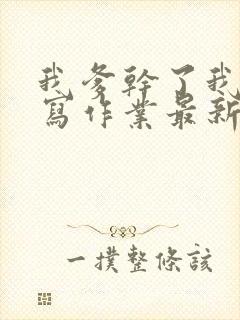 我爹幹了我
寫作業最新
一撲整條該